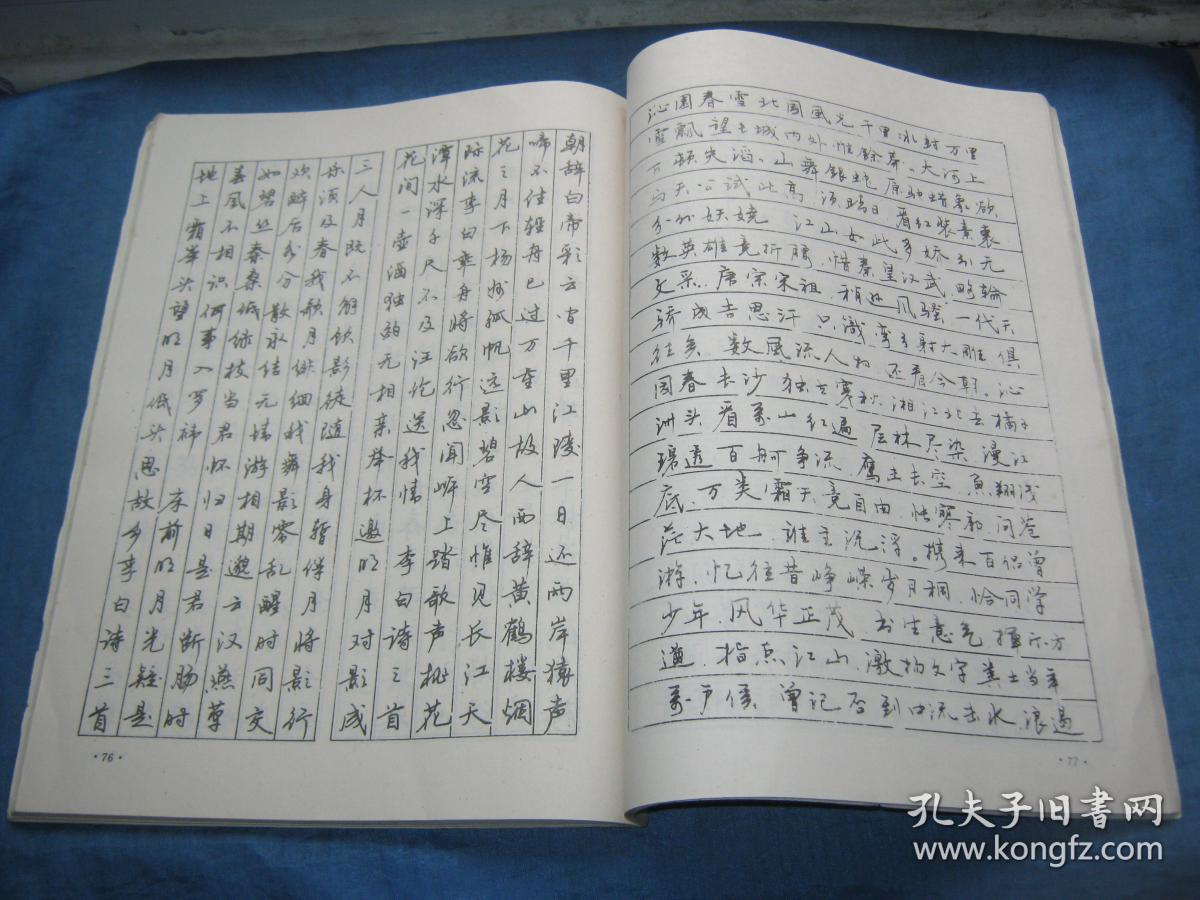 朝辞白帝彩云间千里江陵一日还两岸猿声
啼不住轻舟已过万重山故人西辞黄鹤楼烟
花三月下杨州孤帆远影碧空尽惟见长江天
际流李白乘舟将欲行忽闻岸上踏歌声桃花
潭水深千尺不及汪伦送我情 李白诗三首
花间一壶酒独酌无相亲举杯邀明月对影成
三人月既不解饮影徒随我身暂伴月将影行
乐须及春我歌月徘徊我舞影零乱醒时同交
欢醉后各分散永结无情游相期邈云汉燕草
如碧丝秦桑低绿枝当君怀归日是君断肠时
春风不相识何事入罗帏 床前明月光疑是
地上霜举头望明月低头思故乡李白诗三首
·76·
沁园春雪北国风光千里冰封万里
雪飘望长城内外惟馀莽莽大河上
下顿失滔滔山舞银蛇原驰蜡象欲
与天公试比高须晴日看红装素裹
分外妖娆 江山如此多娇引无
数英雄竞折腰惜秦皇汉武略输
文采唐宗宋祖稍逊风骚一代天
骄成吉思汗只识弯弓射大雕俱
往矣数风流人物还看今朝沁
园春长沙独立寒秋湘江北去橘子
洲头看万山红遍层林尽染漫江
碧透百舸争流鹰击长空鱼翔浅
底万类霜天竞自由怅寥廓问苍
茫大地谁主沉浮携来百侣曾
游忆往昔峥嵘岁月稠恰同学
少年风华正茂书生意气挥斥方
遒指点江山激扬文字粪土当年
万户侯曾记否到中流击水浪遏
·77·
孔夫子旧书网
www.kongfz.com